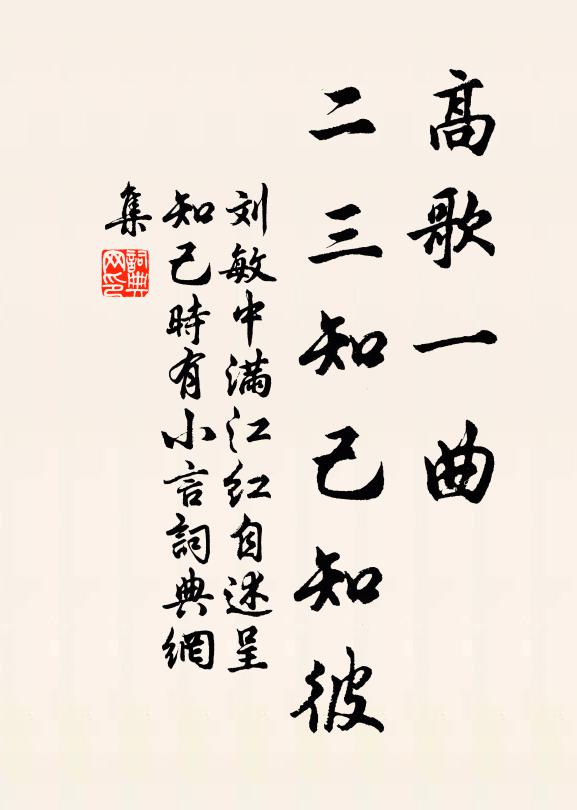 高歌一曲
二三知己知彼
刘敏中満江红自述呈
知己時有小言詞典網
集
詞典
网印